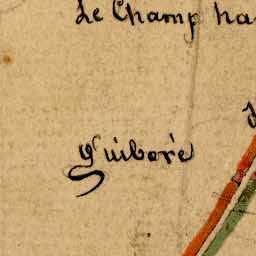 Le Champ ha
Guiboré